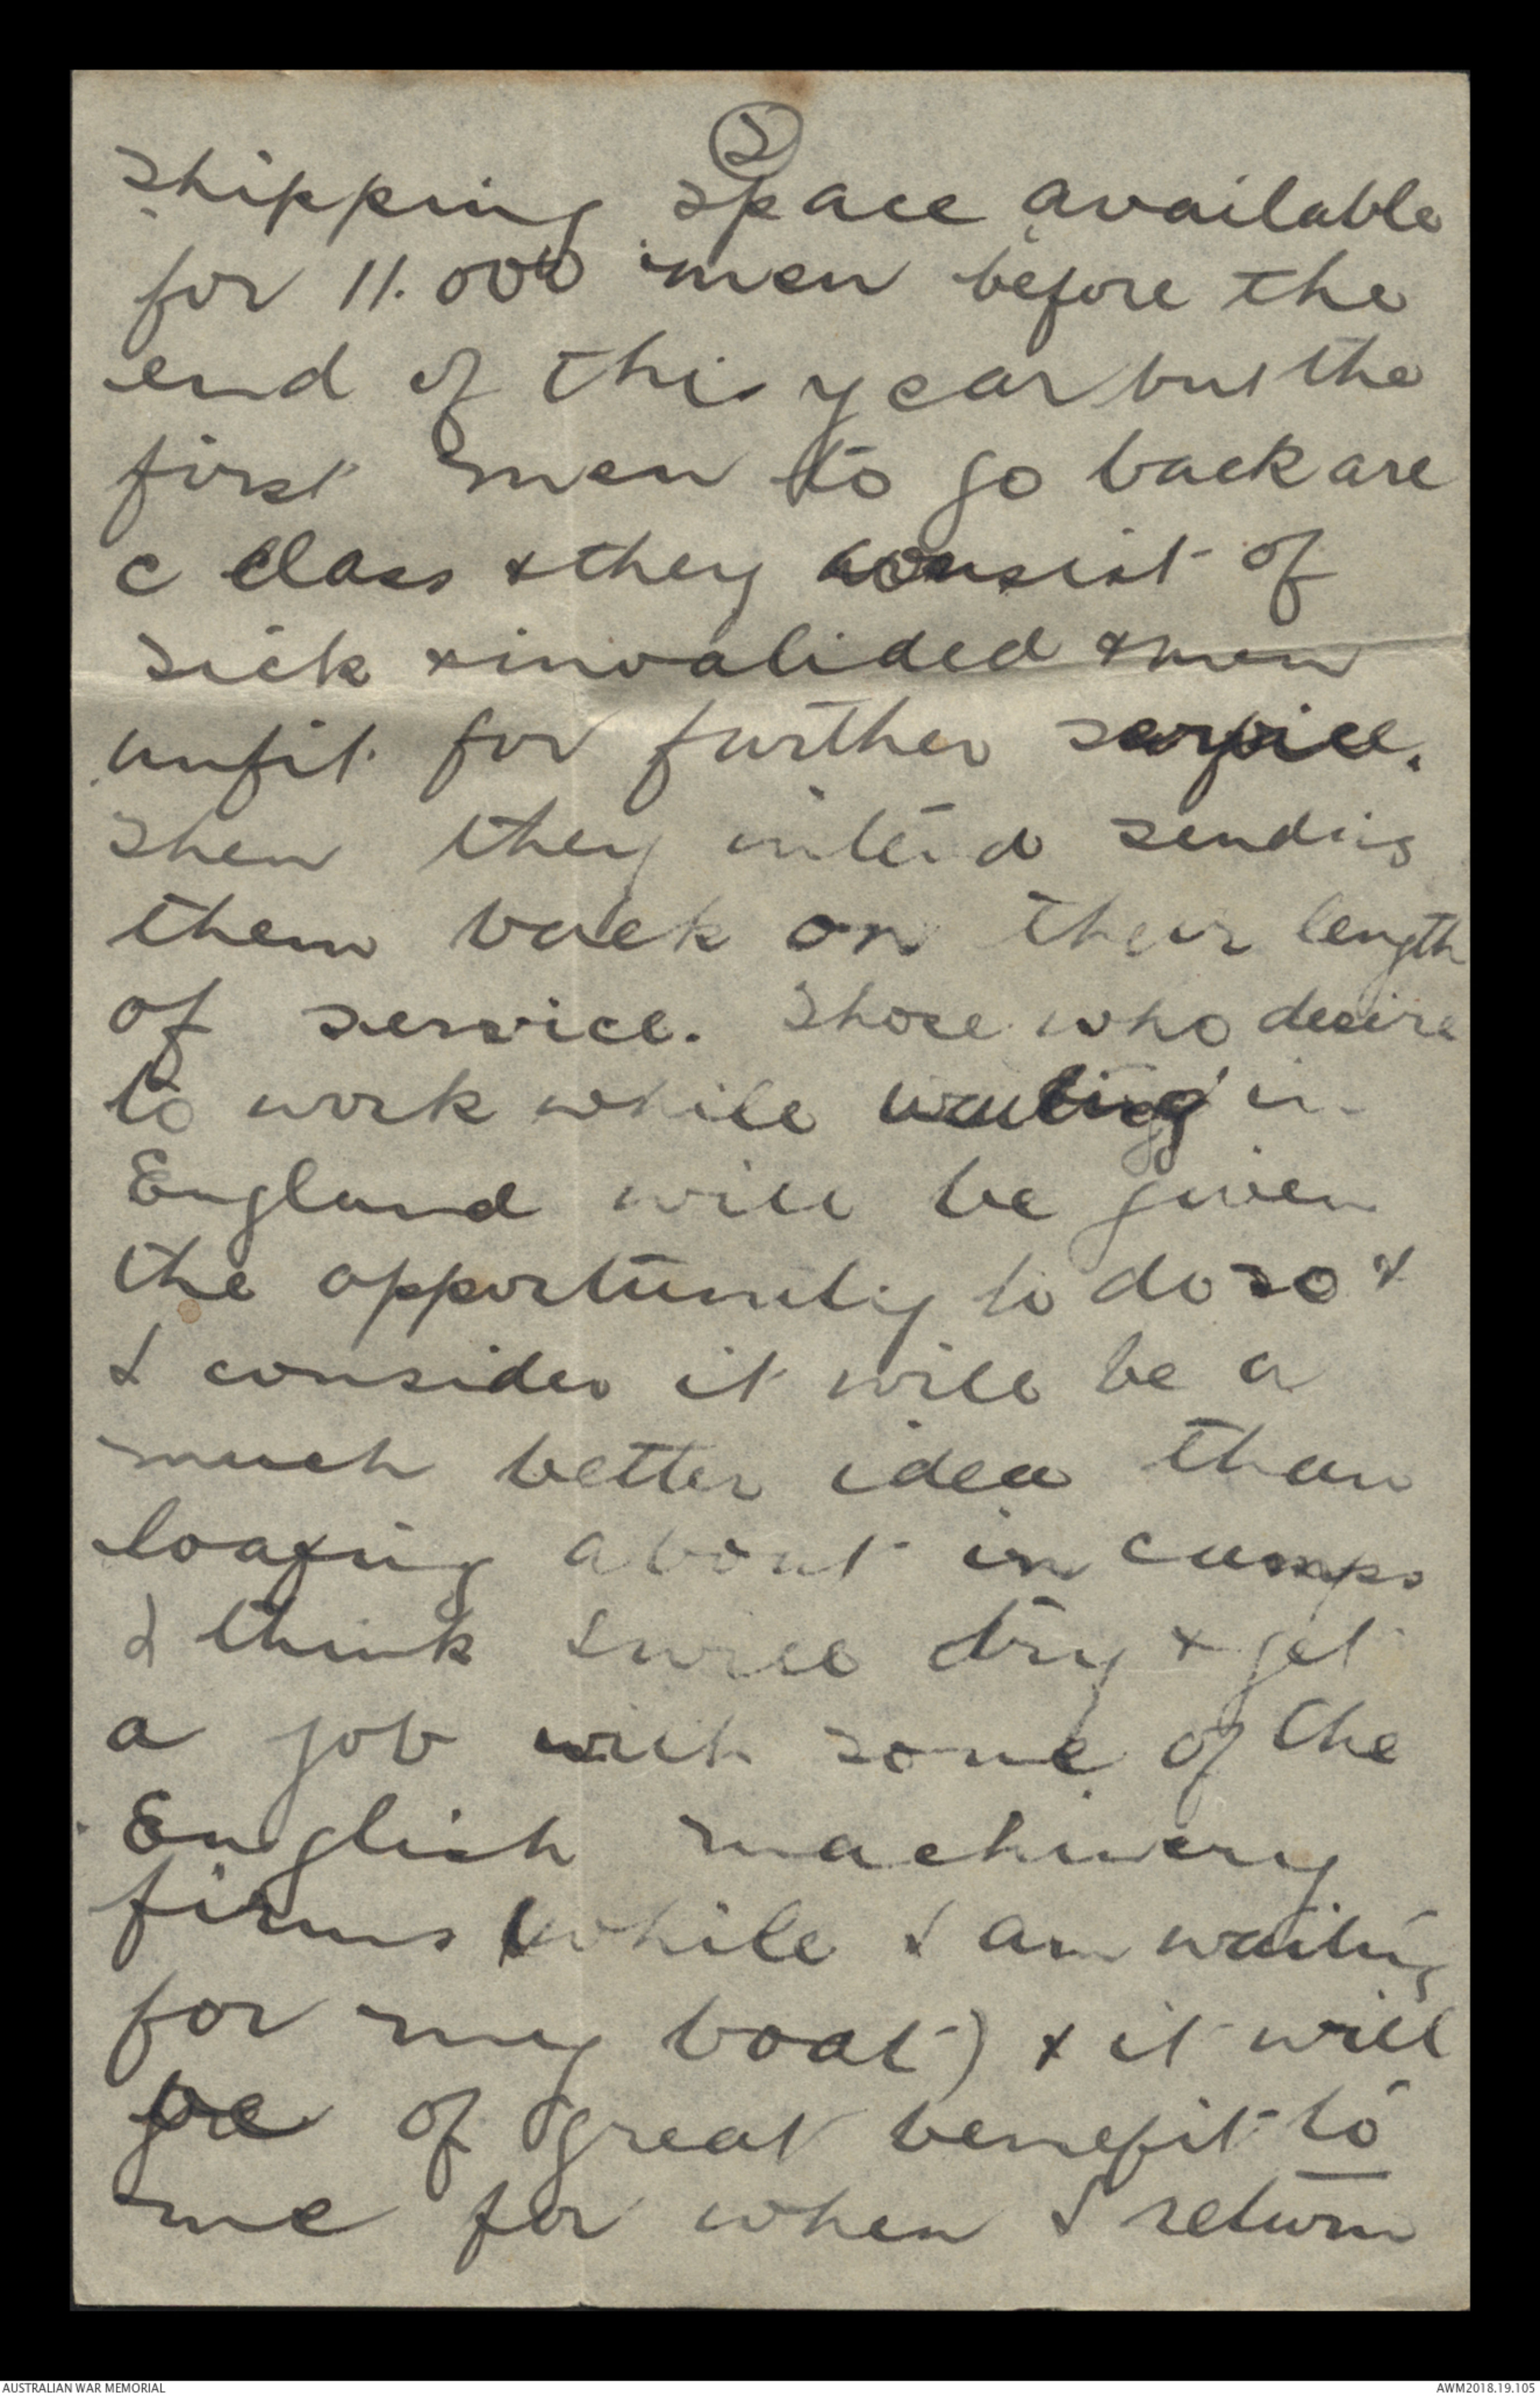 2
shipping space available
for 11.000 men before the
end of this year but the
first men to go back are
c class & they consist of
sick & invalided & men
unfit for further service.
Then they intend sending
them back on their length
of service. Those who desire
to work while waiting in
England will be given
the opportunity to do so &
I consider it will be a
much better idea than
loafing about in camps
I think I will try & get
a job with some of the
English machinery
firms (while I am waiting
for my boat) & it will
be of great benefit to
me for when I return
AUSTRALIAN WAR MEMORIAL
AWM2018.19.105